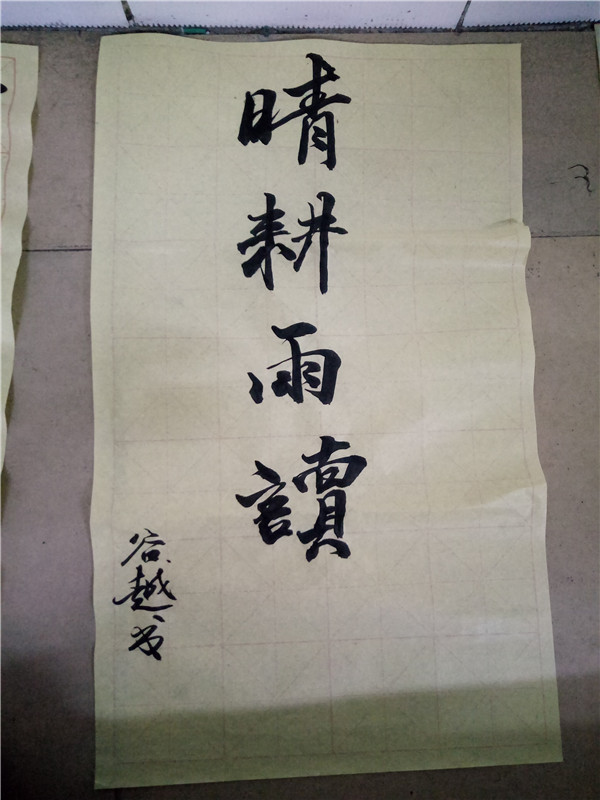 晴耕雨讀
谷越书